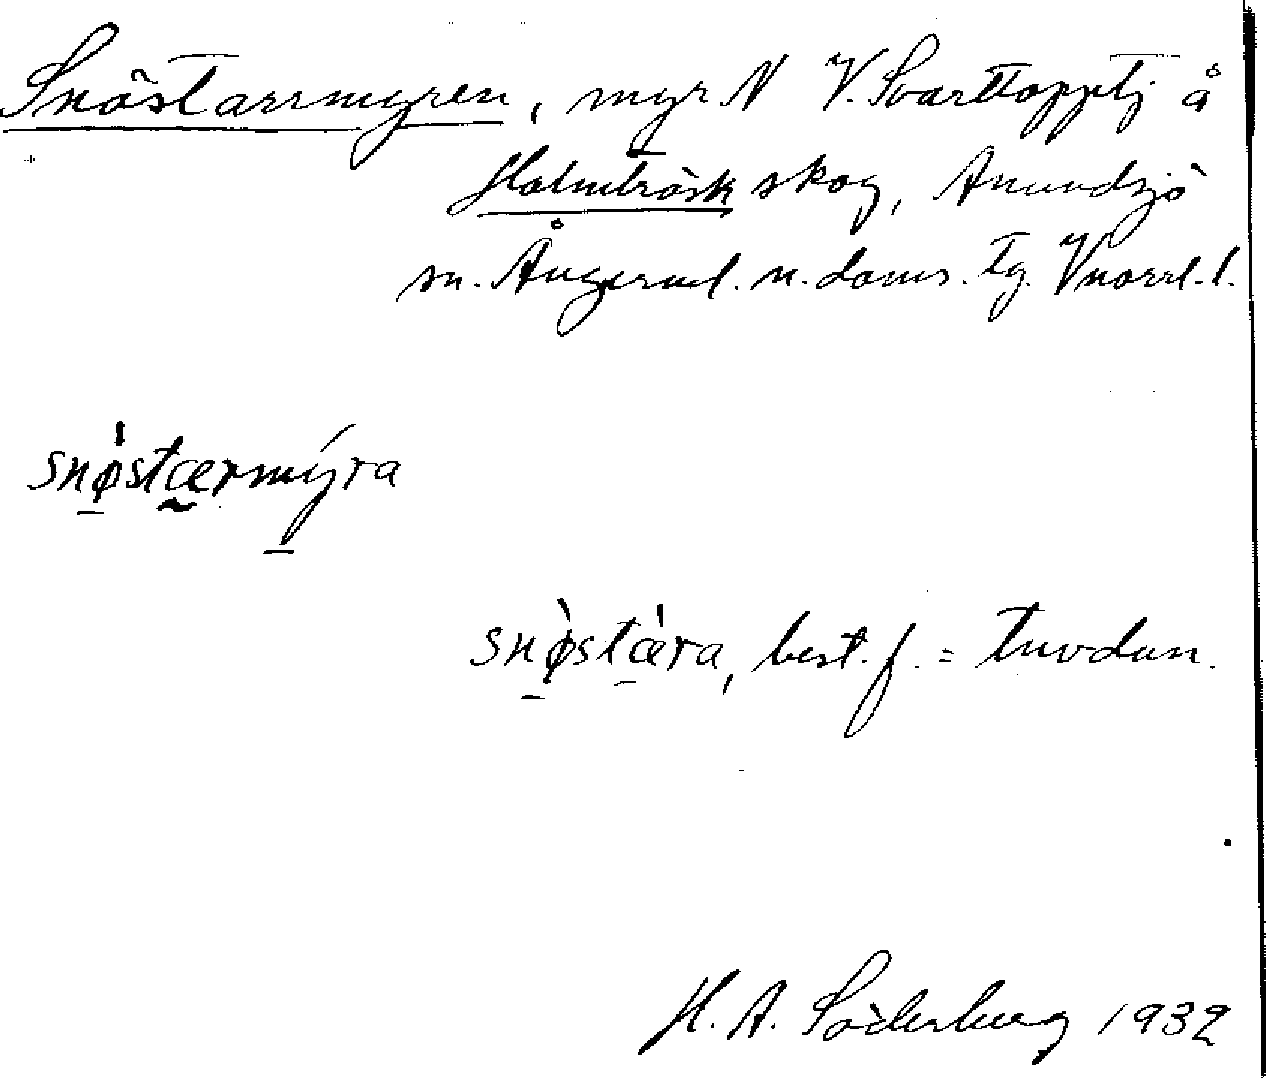 Snöstarrmyren, myr N V. Svarttopptj å
Holmträsk skog, Anundsjö
sn. Ångerml. n. doms. Tg. Vnorrl. l.
snø̀stærmýra
snø̀stæ̀ra, best. f. = tuvdun.
H. A. Söderberg 1932